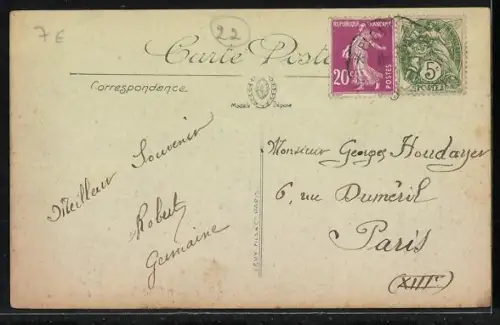 7 €
22
Carte Postale
Correspondance.
Modèle Déposé
REPUBLIQUE FRANÇAISE
20c
POSTES
5c
POSTES
Meilleur Souvenir
Robert
Germaine
Monsieur Georges Houdayer
6, rue Duméril
Paris
(XIIIe)